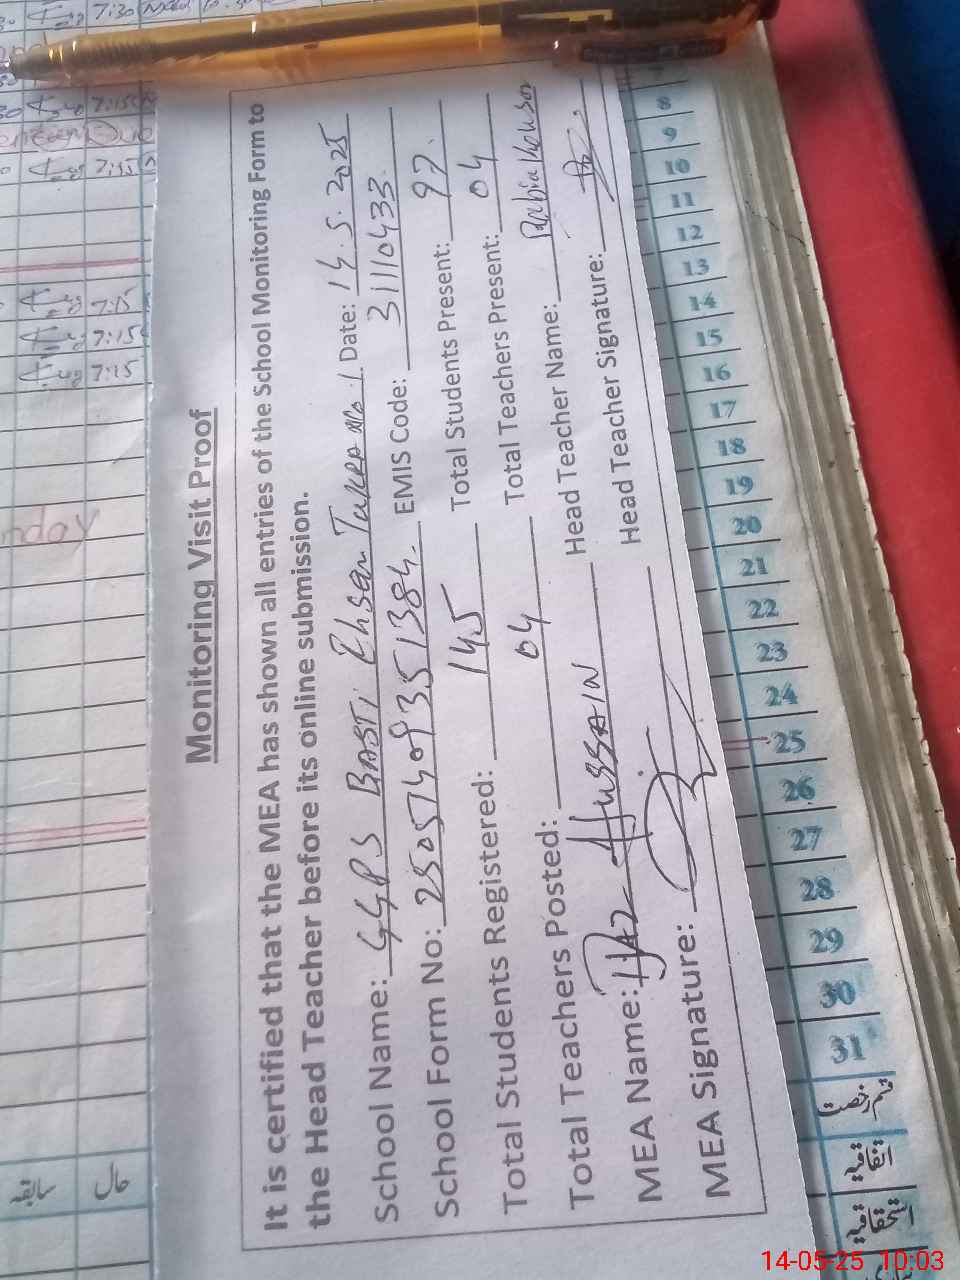 Monitoring Visit Proof
It is certified that the MEA has shown all entries of the School Monitoring Form to
the Head Teacher before its online submission.
School Name: GGPS BASTI Ehsan TukRA No. 1 Date: 14.5.2025
School Form No: 250514093551384 EMIS Code: 31110433
Total Students Registered: 145 Total Students Present: 97.
Total Teachers Posted: 04 Total Teachers Present: 04
MEA Name: HUSSAIN Head Teacher Name: Rabia Kousar
MEA Signature: Head Teacher Signature:
7:30
7:15
7:15
7:15
7:15
7
8
9
10
11
12
13
14
15
16
17
18
19
20
21
22
23
24
25
26
27
28
29
30
31
قسم رخصت
اتفاقیہ
استحقاقیہ
سابقہ
حال
14-05-25 10:03